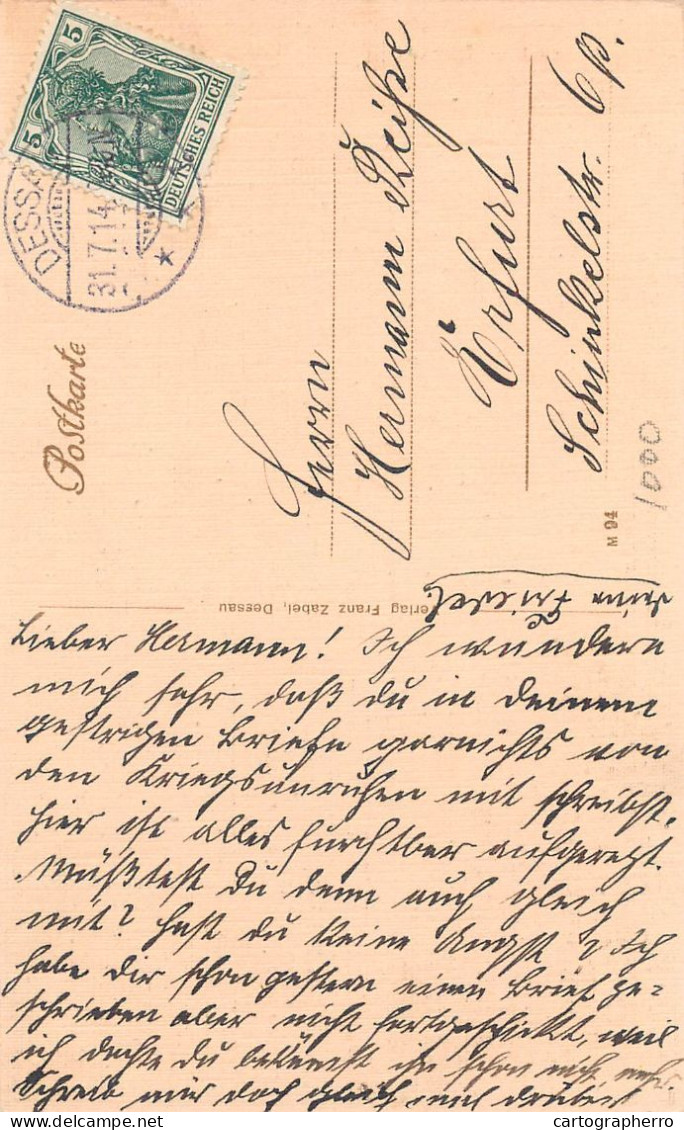 5 5
DEUTSCHES REICH
DESSA
31.7.14
Postkarte
Herrn
Hermann
Erfurt
Schinkelstr. 6p.
1000
M 94
erlag Franz Zabel, Dessau
Lieber Hermann! Ich wundere
mich sehr, daß du in deinem
gestrigen Briefe garnichts von
den Kriegsunruhen mit schreibst.
Hier ist alles furchtbar aufgeregt.
Müßtest Du denn auch gleich
mit? Hast du keine Angst? Ich
habe dir schon gestern einen Brief ge=
schrieben aber nicht fortgeschickt, weil
ich dachte du bekämest ihn schon nicht mehr.
Schreib mir doch gleich mal drüber
deine
cartographerro
delcampe.net